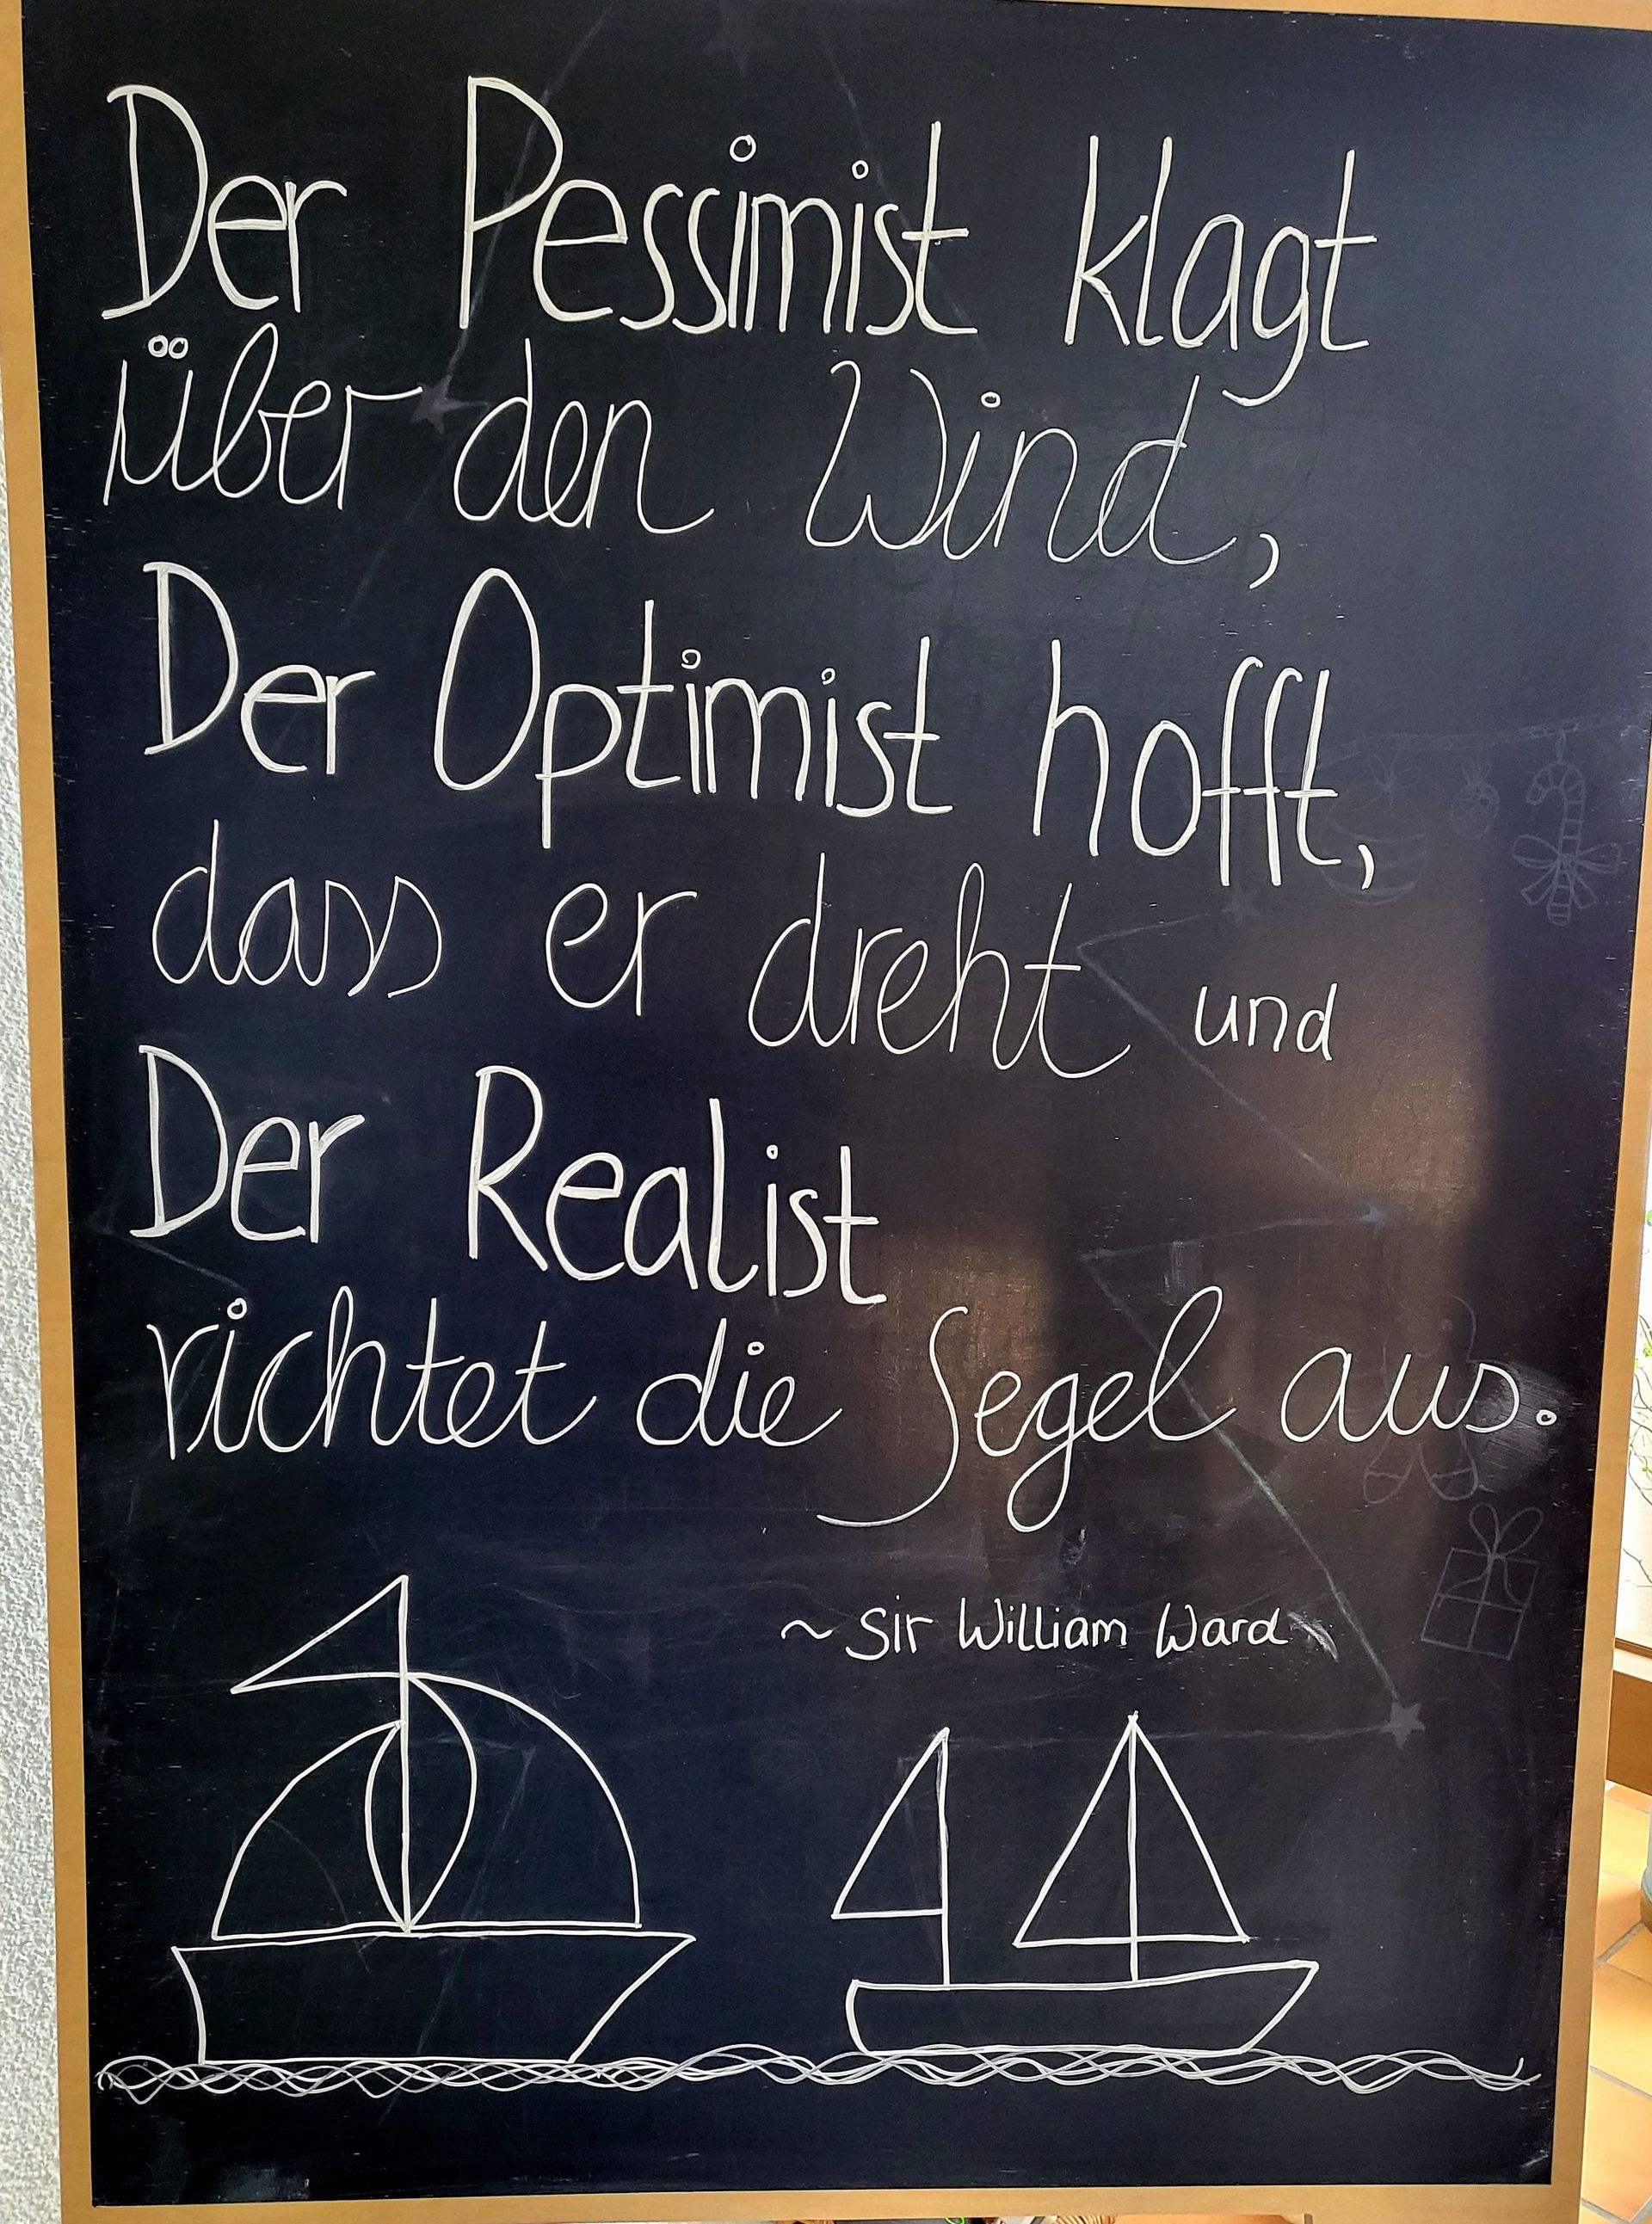 Der Pessimist klagt
über den Wind,
Der Optimist hofft,
dass er dreht und
Der Realist
richtet die Segel aus.
~ Sir William Ward